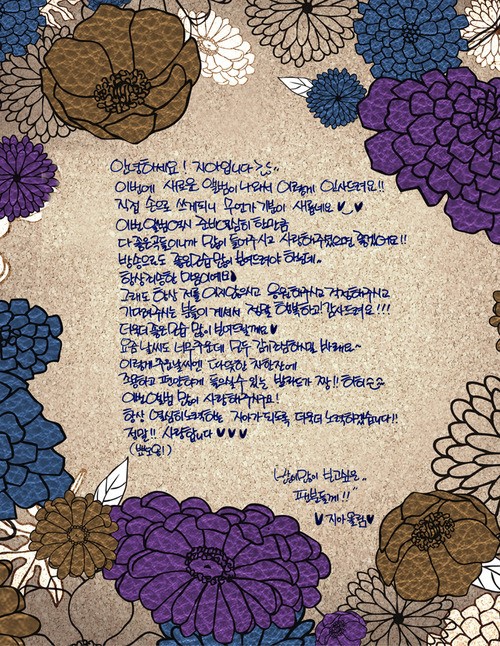 안녕하세요! 지아입니다 >_<..
이번에 새로운 앨범이 나와서 이렇게 인사드려요!!
직접 손으로 쓰게되니 무언가 기분이 새롭네요 ♥‿♥
이번 앨범역시 준비 열심히 한만큼
다 좋은곡들이니까 많이 들어주시고 사랑해주셨으면 좋겠어요!!
방송으로도 좋은모습 많이 보여드려야 하는데..
항상 죄송한 마음이에요♥
그래도 항상 저를 잊지않으시고 응원해주시고 걱정해주시고
기다려주시는 분들이 계셔서 정말 행복하고 감사드려요!!!
더욱더 좋은모습 많이 보여드릴게요♥
요즘 날씨도 너무추운데 모두 감기조심하길 바래요~
이렇게 추운날씨엔 따뜻한 차한잔에
조용하고 편안하게 들으실수 있는 발라드가 짱!! 하하
이번앨범 많이 사랑해주세요!
항상 열심히노력하는 지아가 되도록 더욱더 노력하겠습니다!!
정말!! 사랑합니다 ♥♥♥
(뽀뽀용!)
많이많이 보고싶은..
팬분들께!!"
♥ 지아올림♥